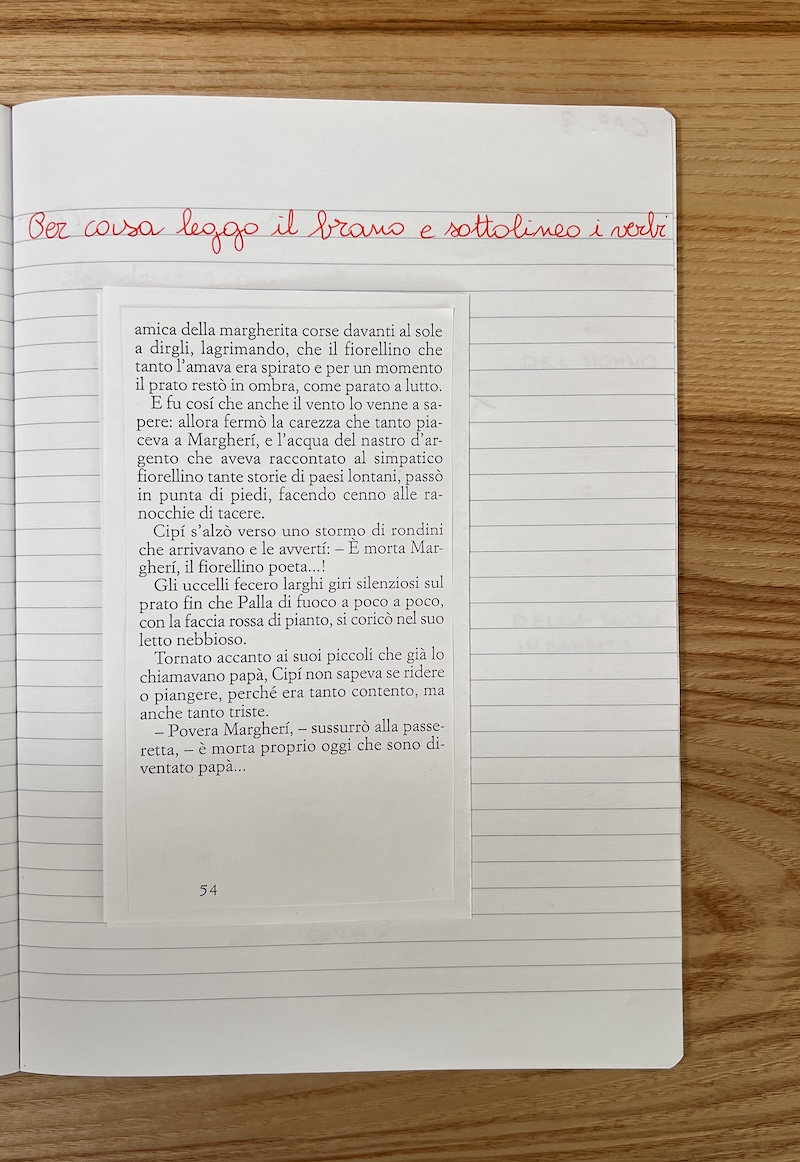 Per casa leggo il brano e sottolineo i verbi
amica della margherita corse davanti al sole
a dirgli, lagrimando, che il fiorellino che
tanto l'amava era spirato e per un momento
il prato restò in ombra, come parato a lutto.
E fu cosí che anche il vento lo venne a sa-
pere: allora fermò la carezza che tanto pia-
ceva a Margherí, e l'acqua del nastro d'ar-
gento che aveva raccontato al simpatico
fiorellino tante storie di paesi lontani, passò
in punta di piedi, facendo cenno alle ra-
nocchie di tacere.
Cipí s'alzò verso uno stormo di rondini
che arrivavano e le avvertí: – È morta Mar-
gherí, il fiorellino poeta...!
Gli uccelli fecero larghi giri silenziosi sul
prato fin che Palla di fuoco a poco a poco,
con la faccia rossa di pianto, si coricò nel suo
letto nebbioso.
Tornato accanto ai suoi piccoli che già lo
chiamavano papà, Cipí non sapeva se ridere
o piangere, perché era tanto contento, ma
anche tanto triste.
– Povera Margherí, – sussurrò alla passe-
retta, – è morta proprio oggi che sono di-
ventato papà...
54